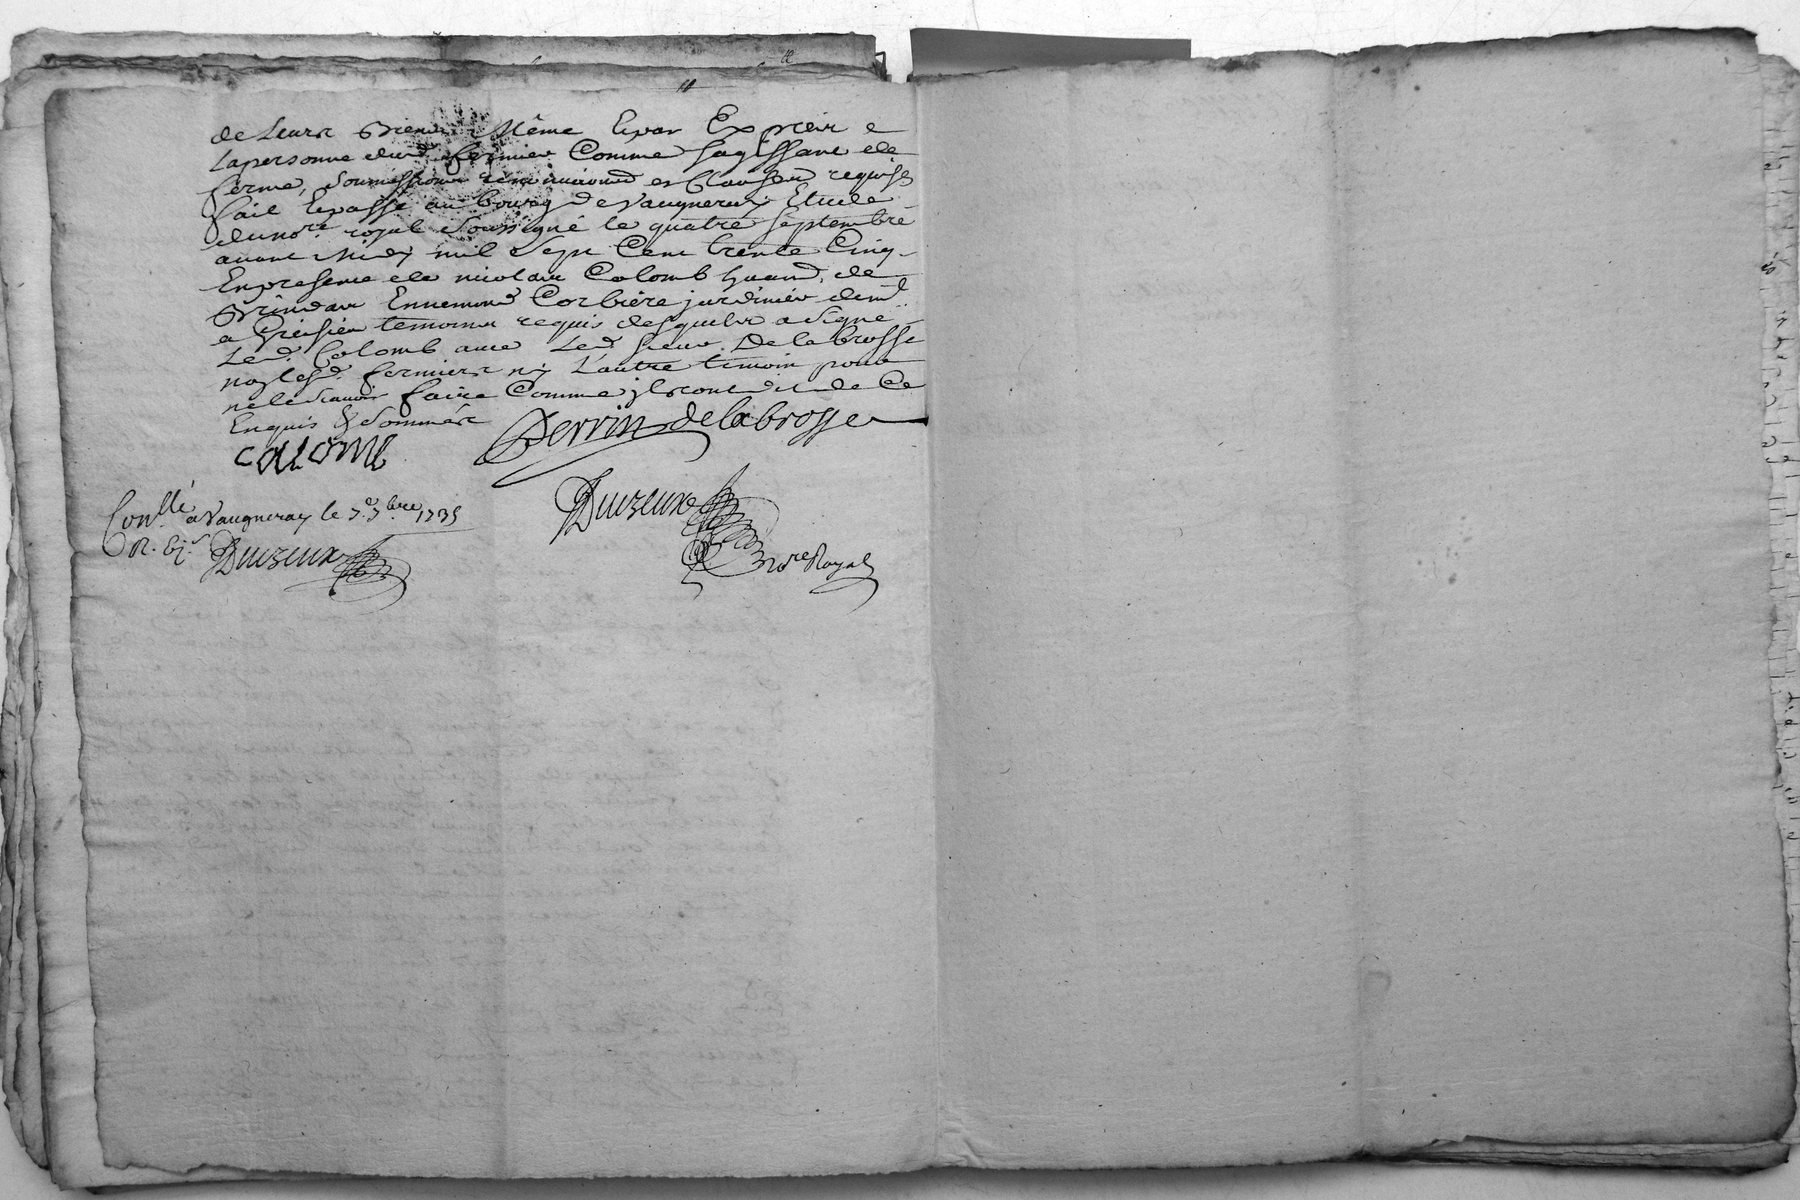 de leurs biens Même Expar Exprès e
la personne dud fermier Comme sagissant de
ferme, soumissions renonciaond et Clauses requises
fait Expassé au bourg de vaugneray Etude
du not.re royal soussigné le quatre septembre
avant Midy mil sept Cent trente Cinq
En presence de nicolas Colomb hband. de
Brindas Ennemond Corbière jardinier demt
a temoins requis desquels a signé
Led. Colomb avec Led. sieur De la brosse
non lesd. fermiers ny L'autre temoin pour
ne le scavoir faire Comme ils ont dit de Ce
Enquis & sommés
COLOMB Perrin de la brosse
Con.llé a Vaugneray le 7.e 7.bre 1735
R.
No.re Royal